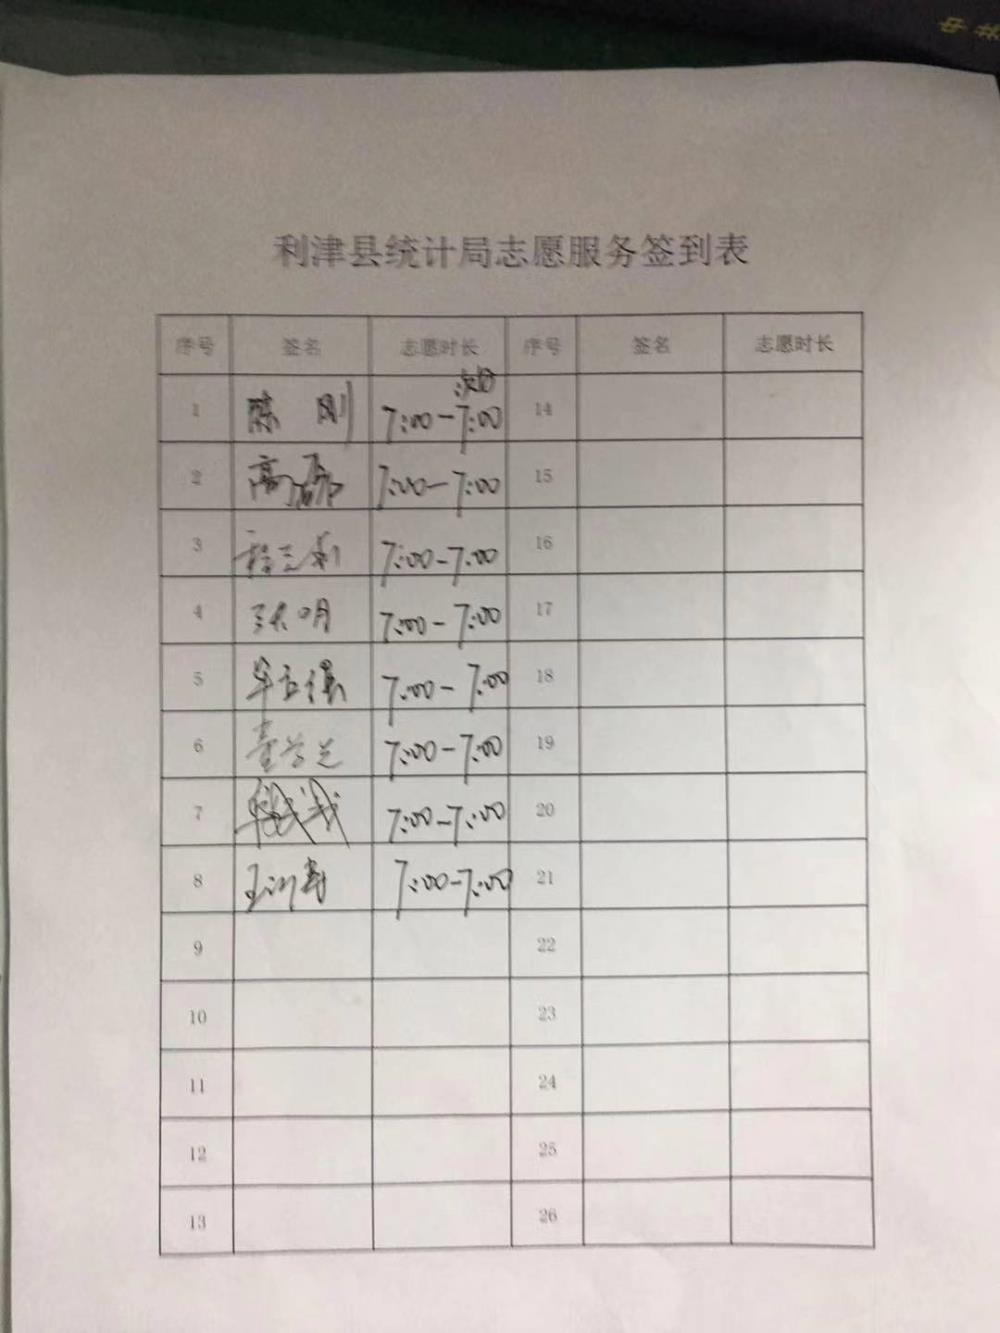 利津县统计局志愿服务签到表
序号 签名 志愿时长 序号 签名 志愿时长
次日
1 陈刚 7:00-7:00 14
2 高磊 7:00-7:00 15
3 7:00-7:00 16
4 张明 7:00-7:00 17
5 7:00-7:00 18
6 7:00-7:00 19
7 7:00-7:00 20
8 7:00-7:00 21
9 22
10 23
11 24
12 25
13 26